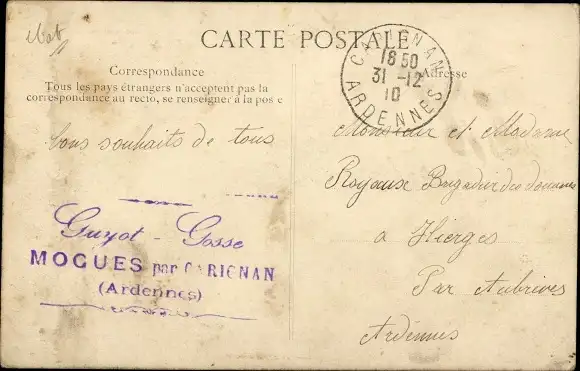 CARTE POSTALE
Correspondance
Tous les pays étrangers n'acceptent pas la
correspondance au recto, se renseigner à la pos e
Adresse
CARIGNAN
18 50
31 -12
10
ARDENNES
Bons souhaits de tous
Guyot - Gosse
MOGUES par CARIGNAN
(Ardennes)
Monsieur et Madame
Royaux Brigadier des douanes
a Hierges
Par Aubrives
Ardennes